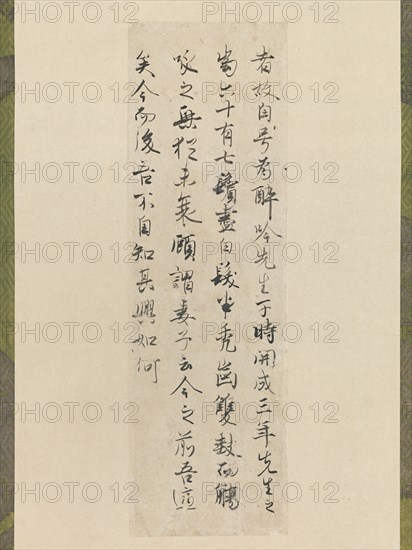 者故自号為醉吟先生于時開成三年先生之
齒六十有七鬚盡白髮半禿齒雙缺而觴
詠之興猶未衰顧謂妻子云今之前吾適
矣今而後吾不自知其興如何
PHOTO 12